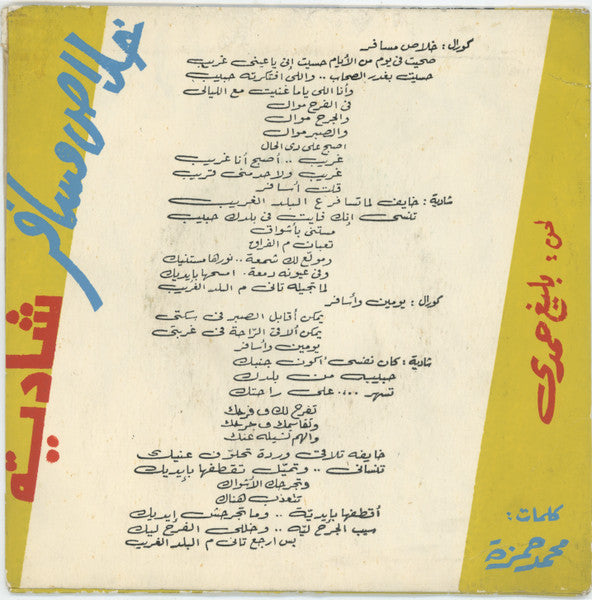 خلاص مسافر
شادية
كورال: خلاص مسافر
صحيت فى يوم من الأيام حسيت إنى ياعينى غريب
حسيت بغدر الصحاب .. واللى افتكرته حبيب
وأنا اللى ياما غنيت مع الليالى
فى الفرح موال
والجرح موال
والصبر موال
اصبح على دى الحال
غريب .. أصبح أنا غريب
غريب ولاحد منى قريب
قلت أسافر
شادية: خايف لما تسافر ع البلد الغريب
تنسى إنك فايت فى بلدك حبيب
مستنى بأشواق
تعبان م الفراق
دموع لك شمعة .. نورها مستنيك
وفى عيونه دمعة. امسحها بإيديك
لما تجيله تانى م البلد الغريب
كورال: يومين وأسافر
يمكن أقابل الصبر فى سكتى
يمكن ألاقى الراحة فى غربتى
يومين وأسافر
شادية: كان نفسى أكون جنبك
حبيبه من بلدك
تسهر .... على راحتك
تفرح لك ف فرحك
وتقاسمك ف جرحك
والهم تشيله عنك
خايفه تلاقى وردة تحلو ف عنيك
تنسانى .. وتمتد تقطفها بإيديك
وتجرحك الأشواك
تتعذب هناك
أقطفها بإيديه .. وما تجرحش إيديك
سيب الجرح ليه .. وخللى الفرح ليك
بس ارجع تانى م البلد الغريب
لحن: بليغ حمدى
كلمات:
محمد حمزة